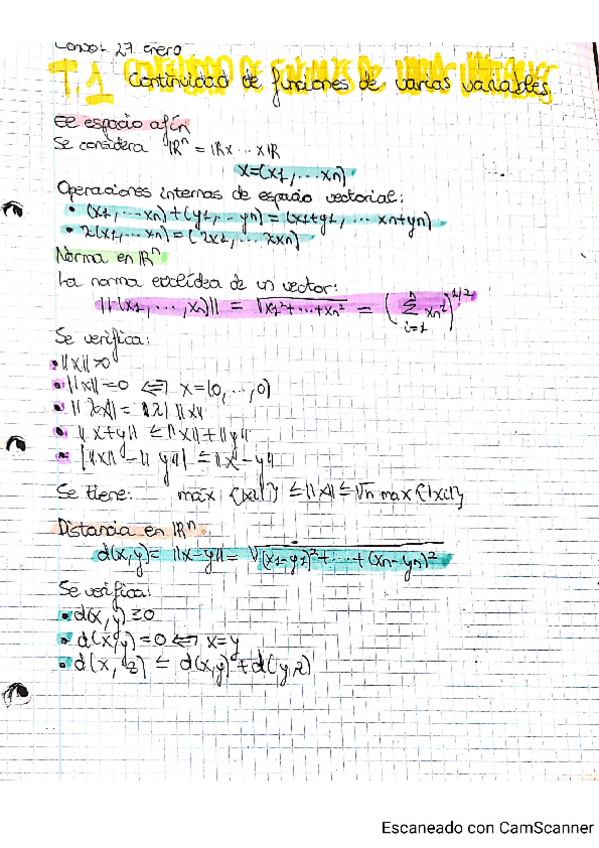 27 enero
T.1 Continuidad de funciones de varias variables
El espacio afín
Se considera ℝⁿ = ℝx...xℝ
x=(x1,...xn)
Operaciones internas de espacio vectorial:
• (x1,...xn)+(y1,...yn) = (x1+y1,... xn+yn)
• λ(x1,...xn)=(λx1,... λxn)
Norma en ℝⁿ
La norma euclídea de un vector:
||(x1,...,xn)|| = √(x1²+...+xn²) = (∑ i=1 n xn²)^1/2
Se verifica:
• ||x||≥0
• ||x||=0 ⟺ x=(0,...,0)
• ||λx|| = |λ| ||x||
• ||x+y|| ≤ ||x||+||y||
• |||x||-||y||| ≤ ||x-y||
Se tiene: máx {|xi|} ≤ ||x|| ≤ √n max {|xi|}
Distancia en ℝⁿ
d(x,y)= ||x-y|| = √((x1-y1)²+...+(xn-yn)²)
Se verifica:
• d(x,y) ≥0
• d(x,y)=0 ⟺ x=y
• d(x,z) ≤ d(x,y)+d(y,z)
Escaneado con CamScanner